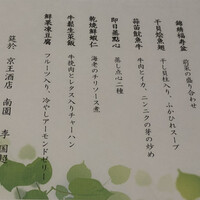 錦綉福寿盆
前菜の盛り合わせ
干貝燴魚翅
干し貝柱入り、ふかひれスープ
蒜苗魷魚牛
牛肉とイカ、ニンニクの芽の炒め
即日蒸點心
蒸し点心二種
乾焼鮮蝦仁
海老のチリソース煮
牛鬆生菜飯
牛挽肉とレタス入りチャーハン
鮮果凍豆腐
フルーツ入り、冷やしアーモンドゼリー
京王酒店 南園 李国超